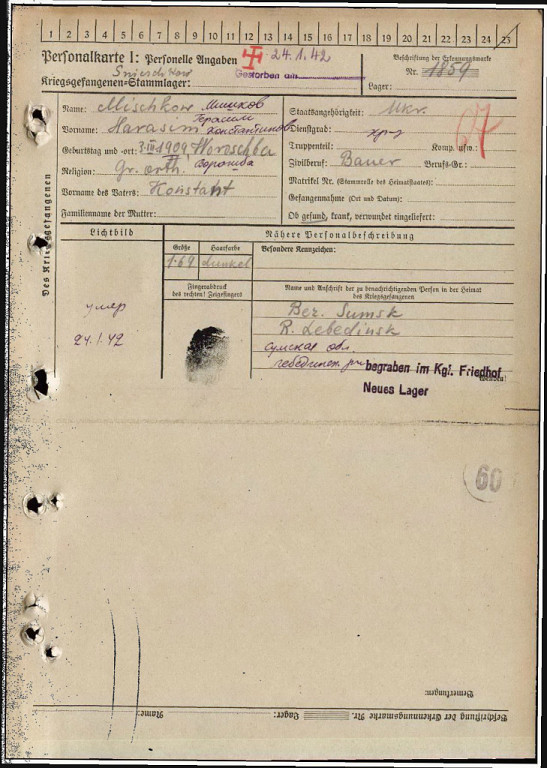 1 2 3 4 5 6 7 8 9 10 11 12 13 14 15 16 17 18 19 20 21 22 23 24 25
Personalkarte I: Personelle Angaben
24.1.42
Gestorben am
Kriegsgefangenen-Stammlager:
Beschriftung der Erkennungsmarke
Nr. 1859
Lager:
Des Kriegsgefangenen
Name: Mischkow Мишков
Герасим
Vorname: Harasim Константинов
Geburtstag und -ort: 1909, Woroschba
Ворожба
Religion: Gr. orth.
Vorname des Vaters: Konstant
Familienname der Mutter:
Staatsangehörigkeit: Ukr.
Dienstgrad:
Truppenteil: Komp. usw.:
67
Zivilberuf: Bauer Berufs-Gr.:
Matrikel Nr. (Stammrolle des Heimatstaates):
Gefangennahme (Ort und Datum):
Ob gesund, krank, verwundet eingeliefert:
Lichtbild
Nähere Personalbeschreibung
Größe
Haarfarbe
Besondere Kennzeichen:
1.69
dunkel
Fingerabdruck
des rechten! Zeigefingers
Name und Anschrift der zu benachrichtigenden Person in der Heimat
des Kriegsgefangenen
умер
24.1.42
Bez. Sumsk
R. Lebedinsk
Сумская обл.
begraben im Kgl. Friedhof
Neues Lager
Wenden!
60
Bemerkungen:
Beschriftung der Erkennungsmarke Nr.
Lager:
Name: